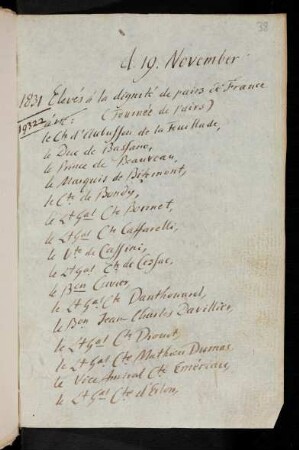 38
d. 19. November
1831 Elevés à la dignité de pairs de France
19322 (Fournée de Pairs)
le Cte d'Aubusson de la Feuillade,
le Duc de Bassano,
le Prince de Beauveau,
le Marquis de
le Cte de Bondy,
le Lt Gal Cte Bonnet,
le Lt Gal Cte Caffarelli,
le Vte de Cassini,
le Lt Gal Cte de Cessac,
le Bon Cuvier,
le Lt Gal Cte Danthouard,
le Bon Jean Charles Davillier,
le Lt Gal Cte Drouot,
le Lt Gal Cte Mathieu Dumas,
le Vice Amiral Cte Emériau,
le Lt Gal Cte d'Erlon,